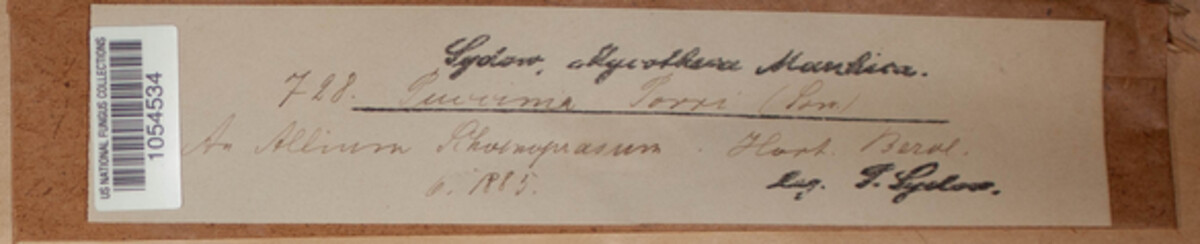 US NATIONAL FUNGUS COLLECTIONS
1054534
Sydow, Mycotheca Marchica.
728. Puccinia Porri (Sow.)
An Allium Schoenoprasum. Hort. Berol.
6. 1885.
leg. P. Sydow.